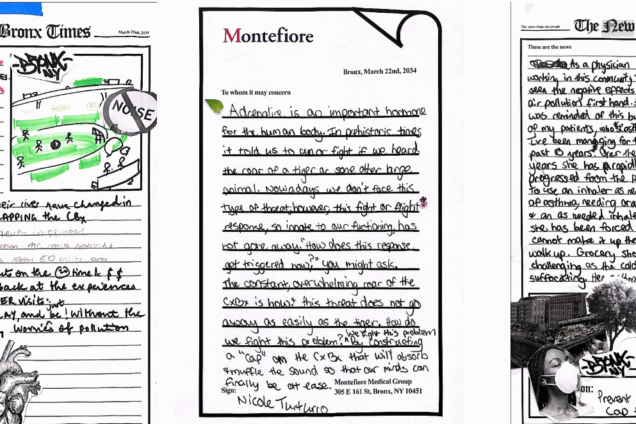 Bronx Times
March 22nd, 2034
BRONX
NY
NOISE
their lives have changed in
CAPPING the CBX
back at the experiences
ER visits;
without the
worries of pollution
Montefiore
Bronx, March 22nd, 2034
To whom it may concern
Adrenaline is an important hormone
for the human body. In prehistoric times
it told us to run or fight if we heard
the roar of a tiger or some other large
animal. Nowadays we don't face this
type of threat, however, this fight or flight
response, so innate to our functioning, has
not gone away. "How does this response
get triggered now?" you might ask.
The constant, overwhelming roar of the
CxBx is how & this threat does not go
away as easily as the tiger. How do
we fight this problem? We fight this problem By constructing
a "cap" on the CxBx that will absorb
& muffle the sound so that our minds can
finally be at ease.
Montefiore Medical Group
Sign:
305 E 161 St, Bronx, NY 10451
Nicole Turturro
The New
These are the news
As a physician
working in this community
seen the negative effects
air pollution first hand.
was reminded of this
of my patients,
I've been managing for
past 13 years. Over the
years she has rapidly
progressed from
to use an inhaler as
of asthma, needing
& an as needed
she has been forced
cannot make it up the
walk up. Grocery
challenging as the cold
suffocating.
BRONX
NY
on:
Prevent
Cap